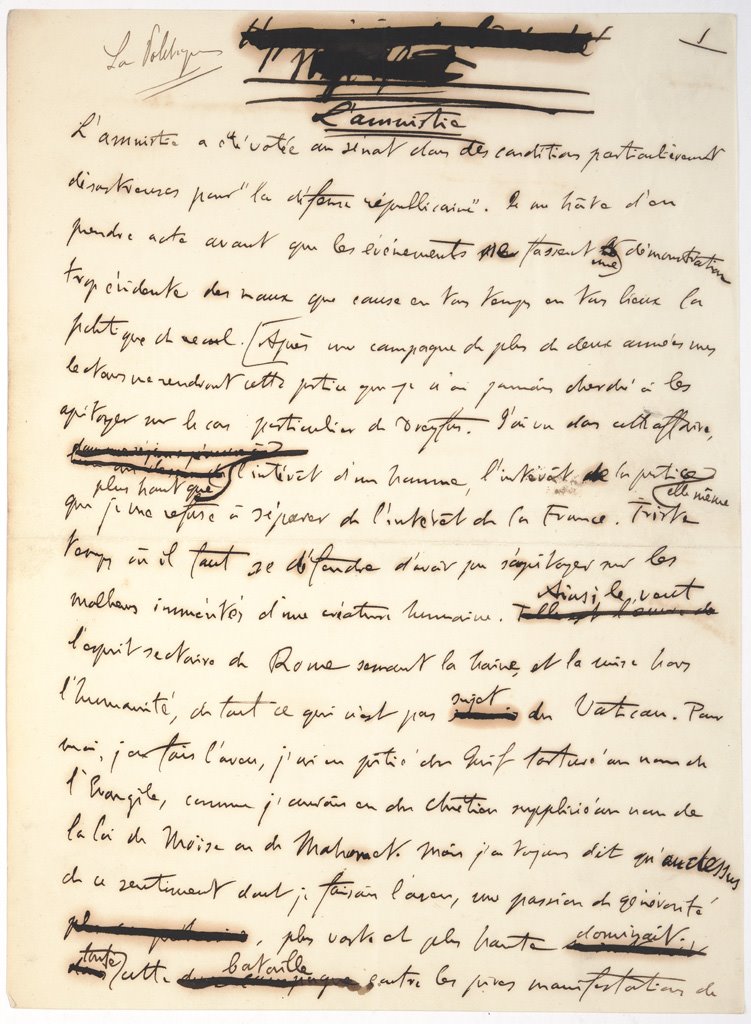 La Politique
1
L'amnistie
L'amnistie a été votée au Sénat dans des conditions particulièrement
désastreuses pour "la défense républicaine". Je me hâte d'en
prendre acte avant que les événements fassent une démonstration
trop évidente des maux que cause en tous temps en tous lieux la
politique de recul. (Après une campagne de plus de deux années mes
lecteurs me rendront cette justice que je n'ai jamais cherché à les
apitoyer sur le cas particulier de Dreyfus. J'ai vu dans cette affaire,
plus haut que l'intérêt d'un homme, l'intérêt de la justice elle même
que je me refuse à séparer de l'intérêt de la France. Triste
temps où il faut se défendre d'avoir pu s'apitoyer sur les
malheurs immérités d'une créature humaine. Ainsi le veut
l'esprit sectaire de Rome semant la haine, et la mise hors
l'humanité, de tout ce qui n'est pas sujet du Vatican. Pour
moi, j'en fais l'aveu, j'ai eu pitié du Juif torturé au nom de
l'Evangile, comme j'aurais eu du chrétien supplicié au nom de
la loi de Moïse ou de Mahomet. Mais j'ai toujours dit qu'au dessus
de ce sentiment dont je faisais l'aveu, une passion de générosité
, plus vaste et plus haute dominait
toute cette bataille contre les pires manifestations de